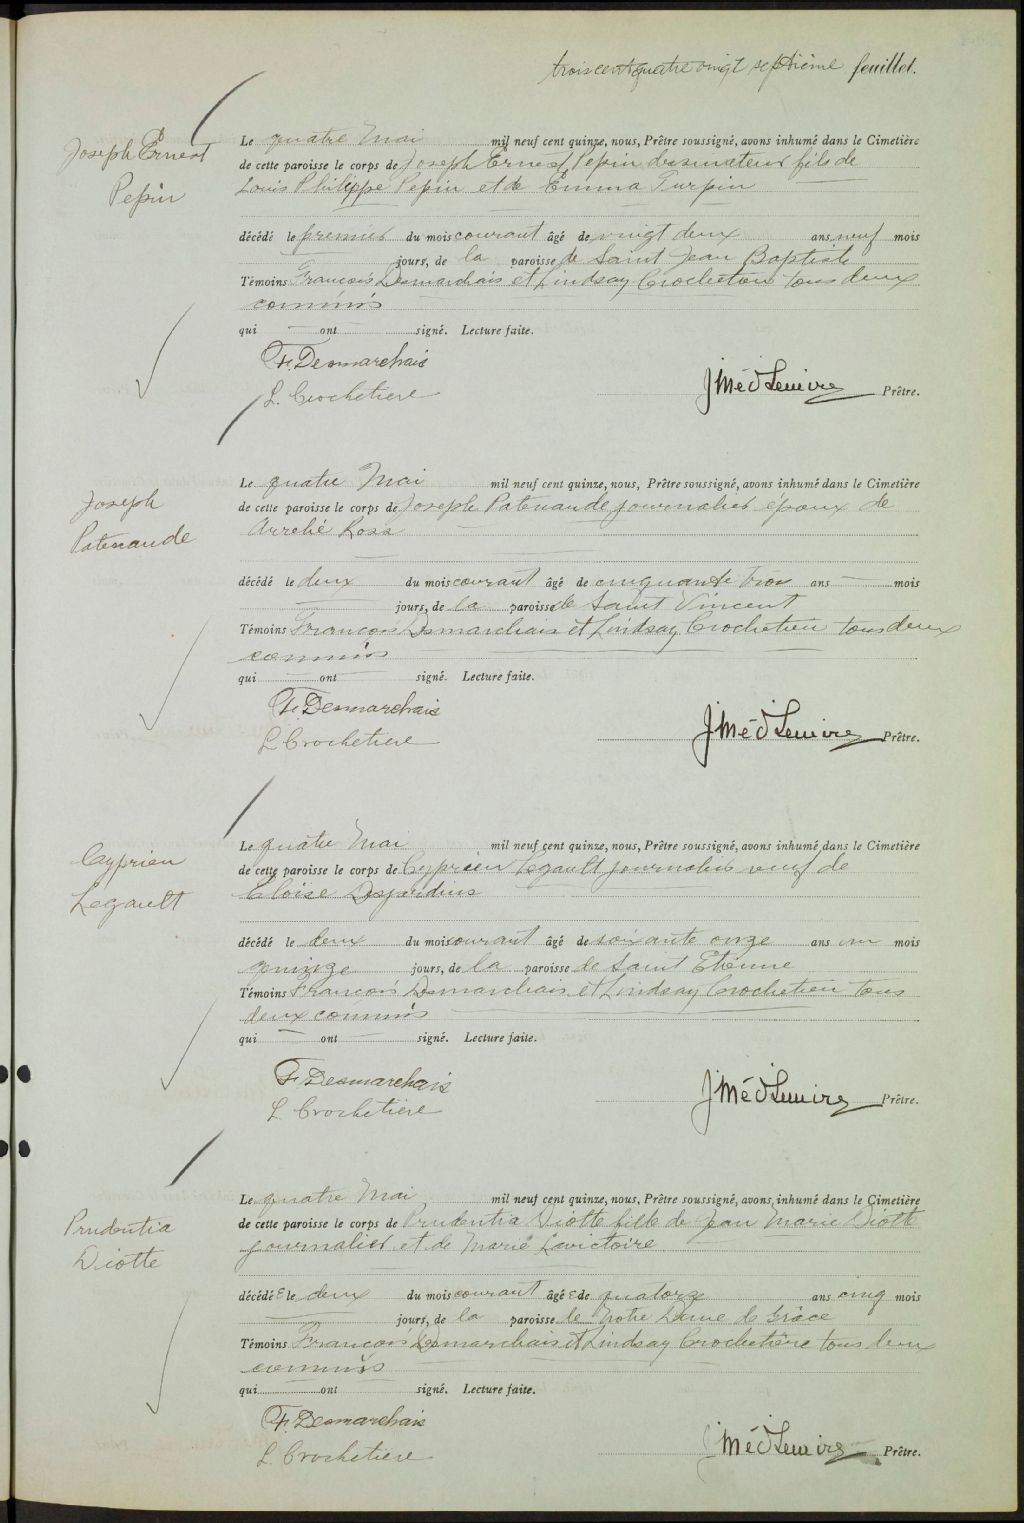 trois cent quatre vingt septième feuillet.
Joseph Ernest
Pepin
Le quatre Mai mil neuf cent quinze, nous, Prêtre soussigné, avons inhumé dans le Cimetière
de cette paroisse le corps de Joseph Ernest Pepin dessinateur fils de
Louis Philippe Pepin et de Emma Turpin
décédé le premier du mois courant âgé de vingt deux ans neuf mois
jours, de la paroisse de Saint Jean Baptiste
Témoins François Desmarchais et Lindsay Crochetiere tous deux
commis
qui ont signé. Lecture faite.
F. Desmarchais
L. Crochetiere
J Méd Lemire Prêtre.
Joseph
Patenaude
Le quatre Mai mil neuf cent quinze, nous, Prêtre soussigné, avons inhumé dans le Cimetière
de cette paroisse le corps de Joseph Patenaude journalier époux de
Ross
décédé le deux du mois courant âgé de cinquante trois ans mois
jours, de la paroisse de Saint Vincent
Témoins François Desmarchais et Lindsay Crochetiere tous deux
commis
qui ont signé. Lecture faite.
F. Desmarchais
L Crochetiere
J Méd Lemire Prêtre.
Cyprien
Legault
Le quatre Mai mil neuf cent quinze, nous, Prêtre soussigné, avons inhumé dans le Cimetière
de cette paroisse le corps de Cyprien Legault journalier veuf de
Eloise Desjardins
décédé le deux du mois courant âgé de soixante onze ans un mois
quinze jours, de la paroisse de Saint Etienne
Témoins François Desmarchais et Lindsay Crochetiere tous
deux commis
qui ont signé. Lecture faite.
F. Desmarchais
L. Crochetiere
J Méd Lemire Prêtre.
Prudentia
Diotte
Le quatre Mai mil neuf cent quinze, nous, Prêtre soussigné, avons inhumé dans le Cimetière
de cette paroisse le corps de Prudentia Diotte fille de Jean Marie Diotte
journalier et de Marie Lavictoire
décédé e le deux du mois courant âgé e de quatorze ans cinq mois
jours, de la paroisse de Notre Dame de Grâce
Témoins François Desmarchais et Lindsay Crochetière tous deux
commis
qui ont signé. Lecture faite.
F. Desmarchais
L. Crochetiere
J Méd Lemire Prêtre.